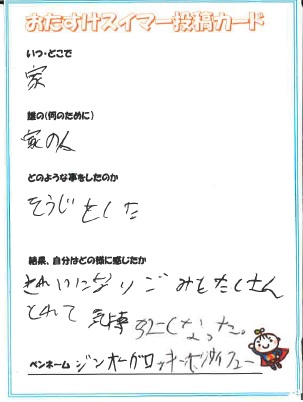 おたすけスイマー投稿カード
いつ・どこで
家
誰の(何のために)
家の人
どのような事をしたのか
そうじをした
結果、自分はどの様に感じたか
きれいになりごみもたくさん
とれて気持
なった。
ペンネーム ジンオーガ